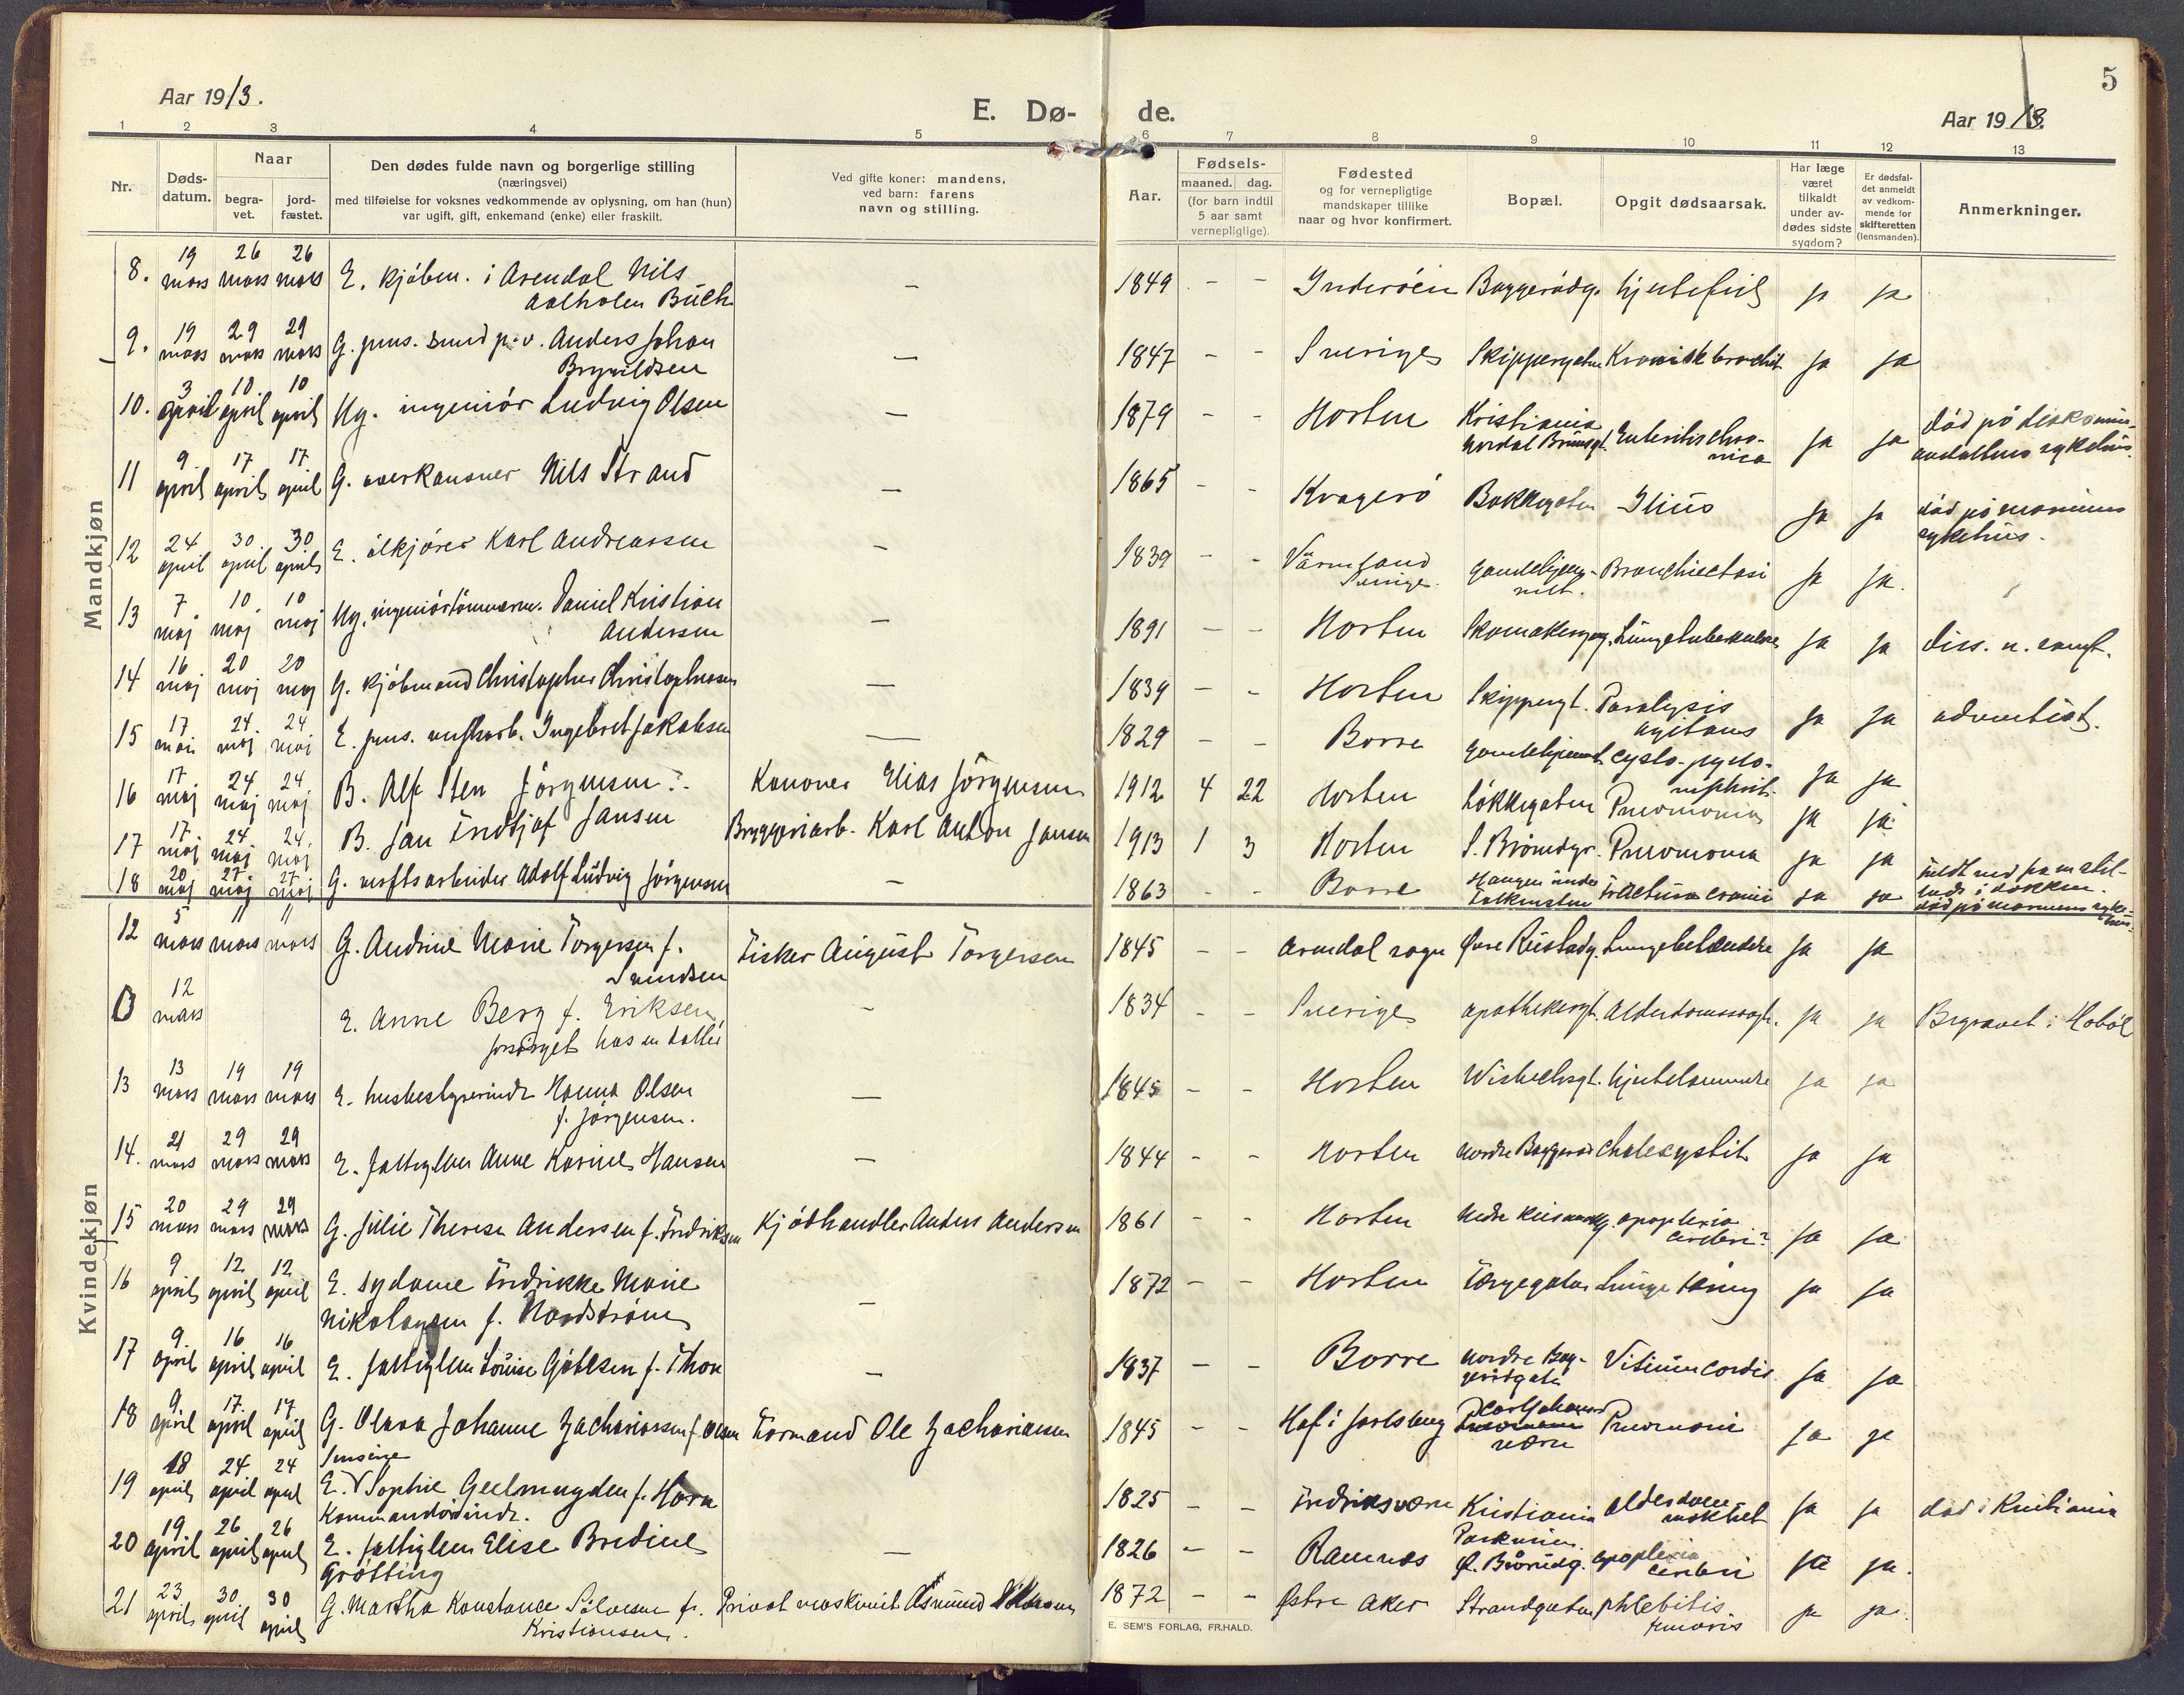 Aar 1913.
E. Dø-
de.
Aar 1913.
5
1 2 3 4 5 6 7 8 9 10 11 12 13
Nr.
Døds-
datum.
Naar
begra-
vet.
jord-
fæstet.
Den dødes fulde navn og borgerlige stilling
(næringsvei)
med tilføielse for voksnes vedkommende av oplysning, om han (hun)
var ugift, gift, enkemand (enke) eller fraskilt.
Ved gifte koner: mandens,
ved barn: farens
navn og stilling.
Aar.
Fødsels-
maaned. dag.
(for barn indtil
5 aar samt
vernepligtige).
Fødested
og for vernepligtige
mandskaper tillike
naar og hvor konfirmert.
Bopæl.
Opgit dødsaarsak.
Har læge
været
tilkaldt
under av-
dødes sidste
sygdom?
Er dødsfal-
det anmeldt
av vedkom-
mende for
skifteretten
(lensmanden).
Anmerkninger.
Mandkjøn
8. 19 mars 26 mars 26 mars E. kjøbm. i Arendal Nils
Aalholm Buch — 1849 - - Inderöen Baggerødg. hjertefeil ja ja
9. 19 mars 29 mars 29 mars G. pens. smed p.v. Anders Johan
Brynildsen — 1847 - - Sverige Skippergaten Kronisk bronchit ja ja
10. 3 april 10 april 10 april Ug. ingeniör Ludvig Olsen — 1879 - - Horten Kristiania
Nordal Brunsgt. Enteritis chro-
nica ja ja död på diakonis-
anstaltens sykehus.
11 9. april 17 april 17 april G. overkanoner Nils Strand — 1865 - - Kragerö Bakkegaten Ilius ja ja död på marinens
sykehus.
12 24 april 30 april 30 april E. ölkjörer Karl Andreassen — 1839 - - Värmland
Sverige. gamlehjem-
met. Bronchiectasi ja ja.
13 7. maj 10. maj 10 maj Ug. ingeniör Daniel Kristian
Andersen — 1891 - - Horten Skomakergg. Lungetuberkulose ja ja diss. u. samf.
14 16 maj 20 maj 20 maj G. kjöbmand Christopher Christophersen — 1839 - - Horten Skippergt. Paralysis
agitans ja ja adventist.
15 17 maj 24. maj 24 maj E. pens. verftsarb. Ingebret Jakobsen — 1829 - - Borre Gamlehjemmet cysto-pyelo-
nephrit. ja ja
16 17 maj 24 maj 24 maj B. Alf Sten Jörgensen Kanoner Elias Jörgensen 1912 4 22 Horten Lökkegaten Pneomonia ja ja
17 17 maj 24 maj 24. maj B. Jan Fredtjof Jansen Bryggeriarb. Karl Anton Jansen 1913 1 3 Horten S. Brårudgt. Pneomonia ja ja
18 20 maj 27 maj 27 maj G. verftsarbeider Adolf Ludvig Jörgensen — 1863 - - Borre Haugen under
Falkensten fractura cranii ja ja faldt ned fra et stil-
lads i dokken.
död på marinens syke-
hus.
Kvindekjøn
12 5 mars 11 mars 11 mars G. Andrine Marie Torgersen f.
Svendsen Fisker August Torgersen 1845 - - Arendal sogn Övre Keisadg. Lungebetændelse ja ja
0 12 mars E. Anne Berg f. Eriksen
forsörget hos en datter — 1834 - - Sverige apothekergt. Alderdomssvagh. ja ja Begravet i Hoböl
13 13 mars 19 mars 19 mars E. husbestyrerinde Hanna Olsen
f. Jörgensen. — 1845 - - Horten Wichelhsgt. hjertelammelse ja ja
14. 21 mars 29 mars 29 mars E. fattiglem Anne Karine Hansen — 1844 - - Horten nordre Baggerød cholecystit ja ja
15 20 mars 29 mars 29 mars G. Julie Therese Andersen f. Fredriksen Kjödhandler Anders Andersen 1861 - - Horten nedre Keisemarkg. apoplexia
cerebri? ja ja
16 9 april 12. april 12 april E. sydame Fredrikke Marie
Nikolaysen f. Nordström — 1872 - - Horten Torvegaten Lungetæring ja ja
17 9. april 16 april 16 april E. fattiglem Louise Gjölsen f. Thon — 1837 - - Borre nordre Bag-
gerødgate Vitium cordis ja ja
18 9. april 17. april 17 april G. Olava Johanne Zachariassen f. Olsen Formand Ole Zachariassen 1845 - - Hof i Jarlsberg Carljohans
værn Pneomoni ja ja
19 18 april 24 april 24 april E. Sophie Geelmuyden f. Horn
Kommandörinde. 1825 - - Fredriksværn Kristiania alderdom
ja ja död i Kristiania
20 19 april 26 april 26 april E. fattiglem Elise Bredine
Gröttling — 1826 - - Ramnes Ö. Brårudg. apoplexia
cerebri ja ja.
21 23 april 30. april 30 april G. Martha Konstance Sölvesen f.
Kristiansen. Privat maskinist Asmund 1872 - - Östre Aker Strandgaten phlebitis
femoris ja ja.
E. SEM'S FORLAG, FR.HALD.